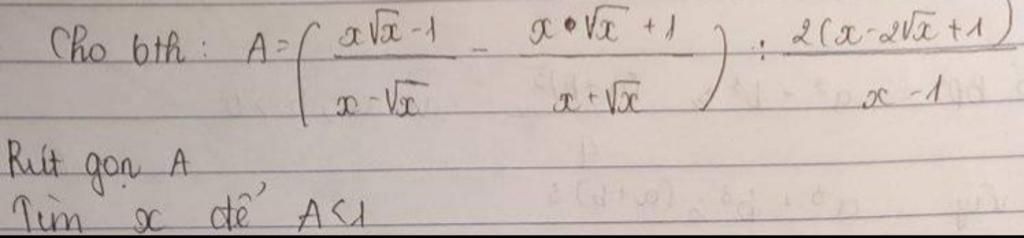 Cho bth: A = ( (x√x - 1)/(x - √x) - (x•√x + 1)/(x + √x) ) : (2(x - 2√x + 1))/(x - 1)
Rút gọn A
Tìm x để A<1